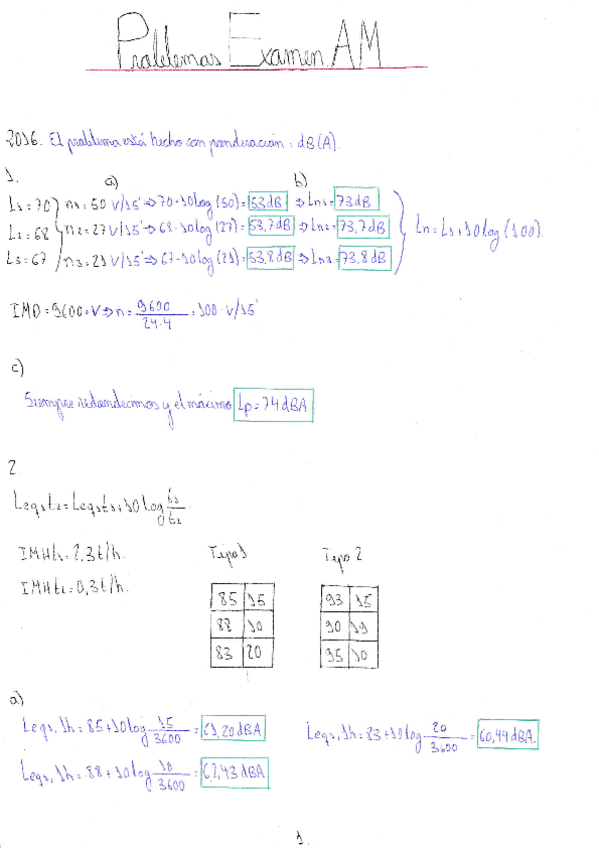 Problemas Examen AM
2016. El problema está hecho con ponderación: dB(A).
1.
a) b)
L1=70 n1=50 v/15'⇒70-10log(50)=53dB ⇒Ln1=73dB
L2=68 n2=27 v/15'⇒68-10log(27)=53,7dB ⇒Ln2=73,7dB Ln=L1+10log(100)
L3=67 n3=21 v/15'⇒67-10log(21)=53,8dB ⇒Ln3=73,8dB
IMD=9600·v⇒n=9600/24·4=100·v/15'
c)
Siempre redondeamos y el máximo Lp=74dBA
2.
Leq1t2=Leq1t1+10log t1/t2
IMHt1=2,3t/h. Tipo1 Tipo 2
IMHt2=0,3t/h.
85 15 93 15
88 10 90 19
83 20 95 10
a)
Leq1,1h=85+10log 15/3600=61,20dBA Leq1,1h=83+10log 20/3600=60,44dBA
Leq1,1h=88+10log 10/3600=62,43dBA
1.